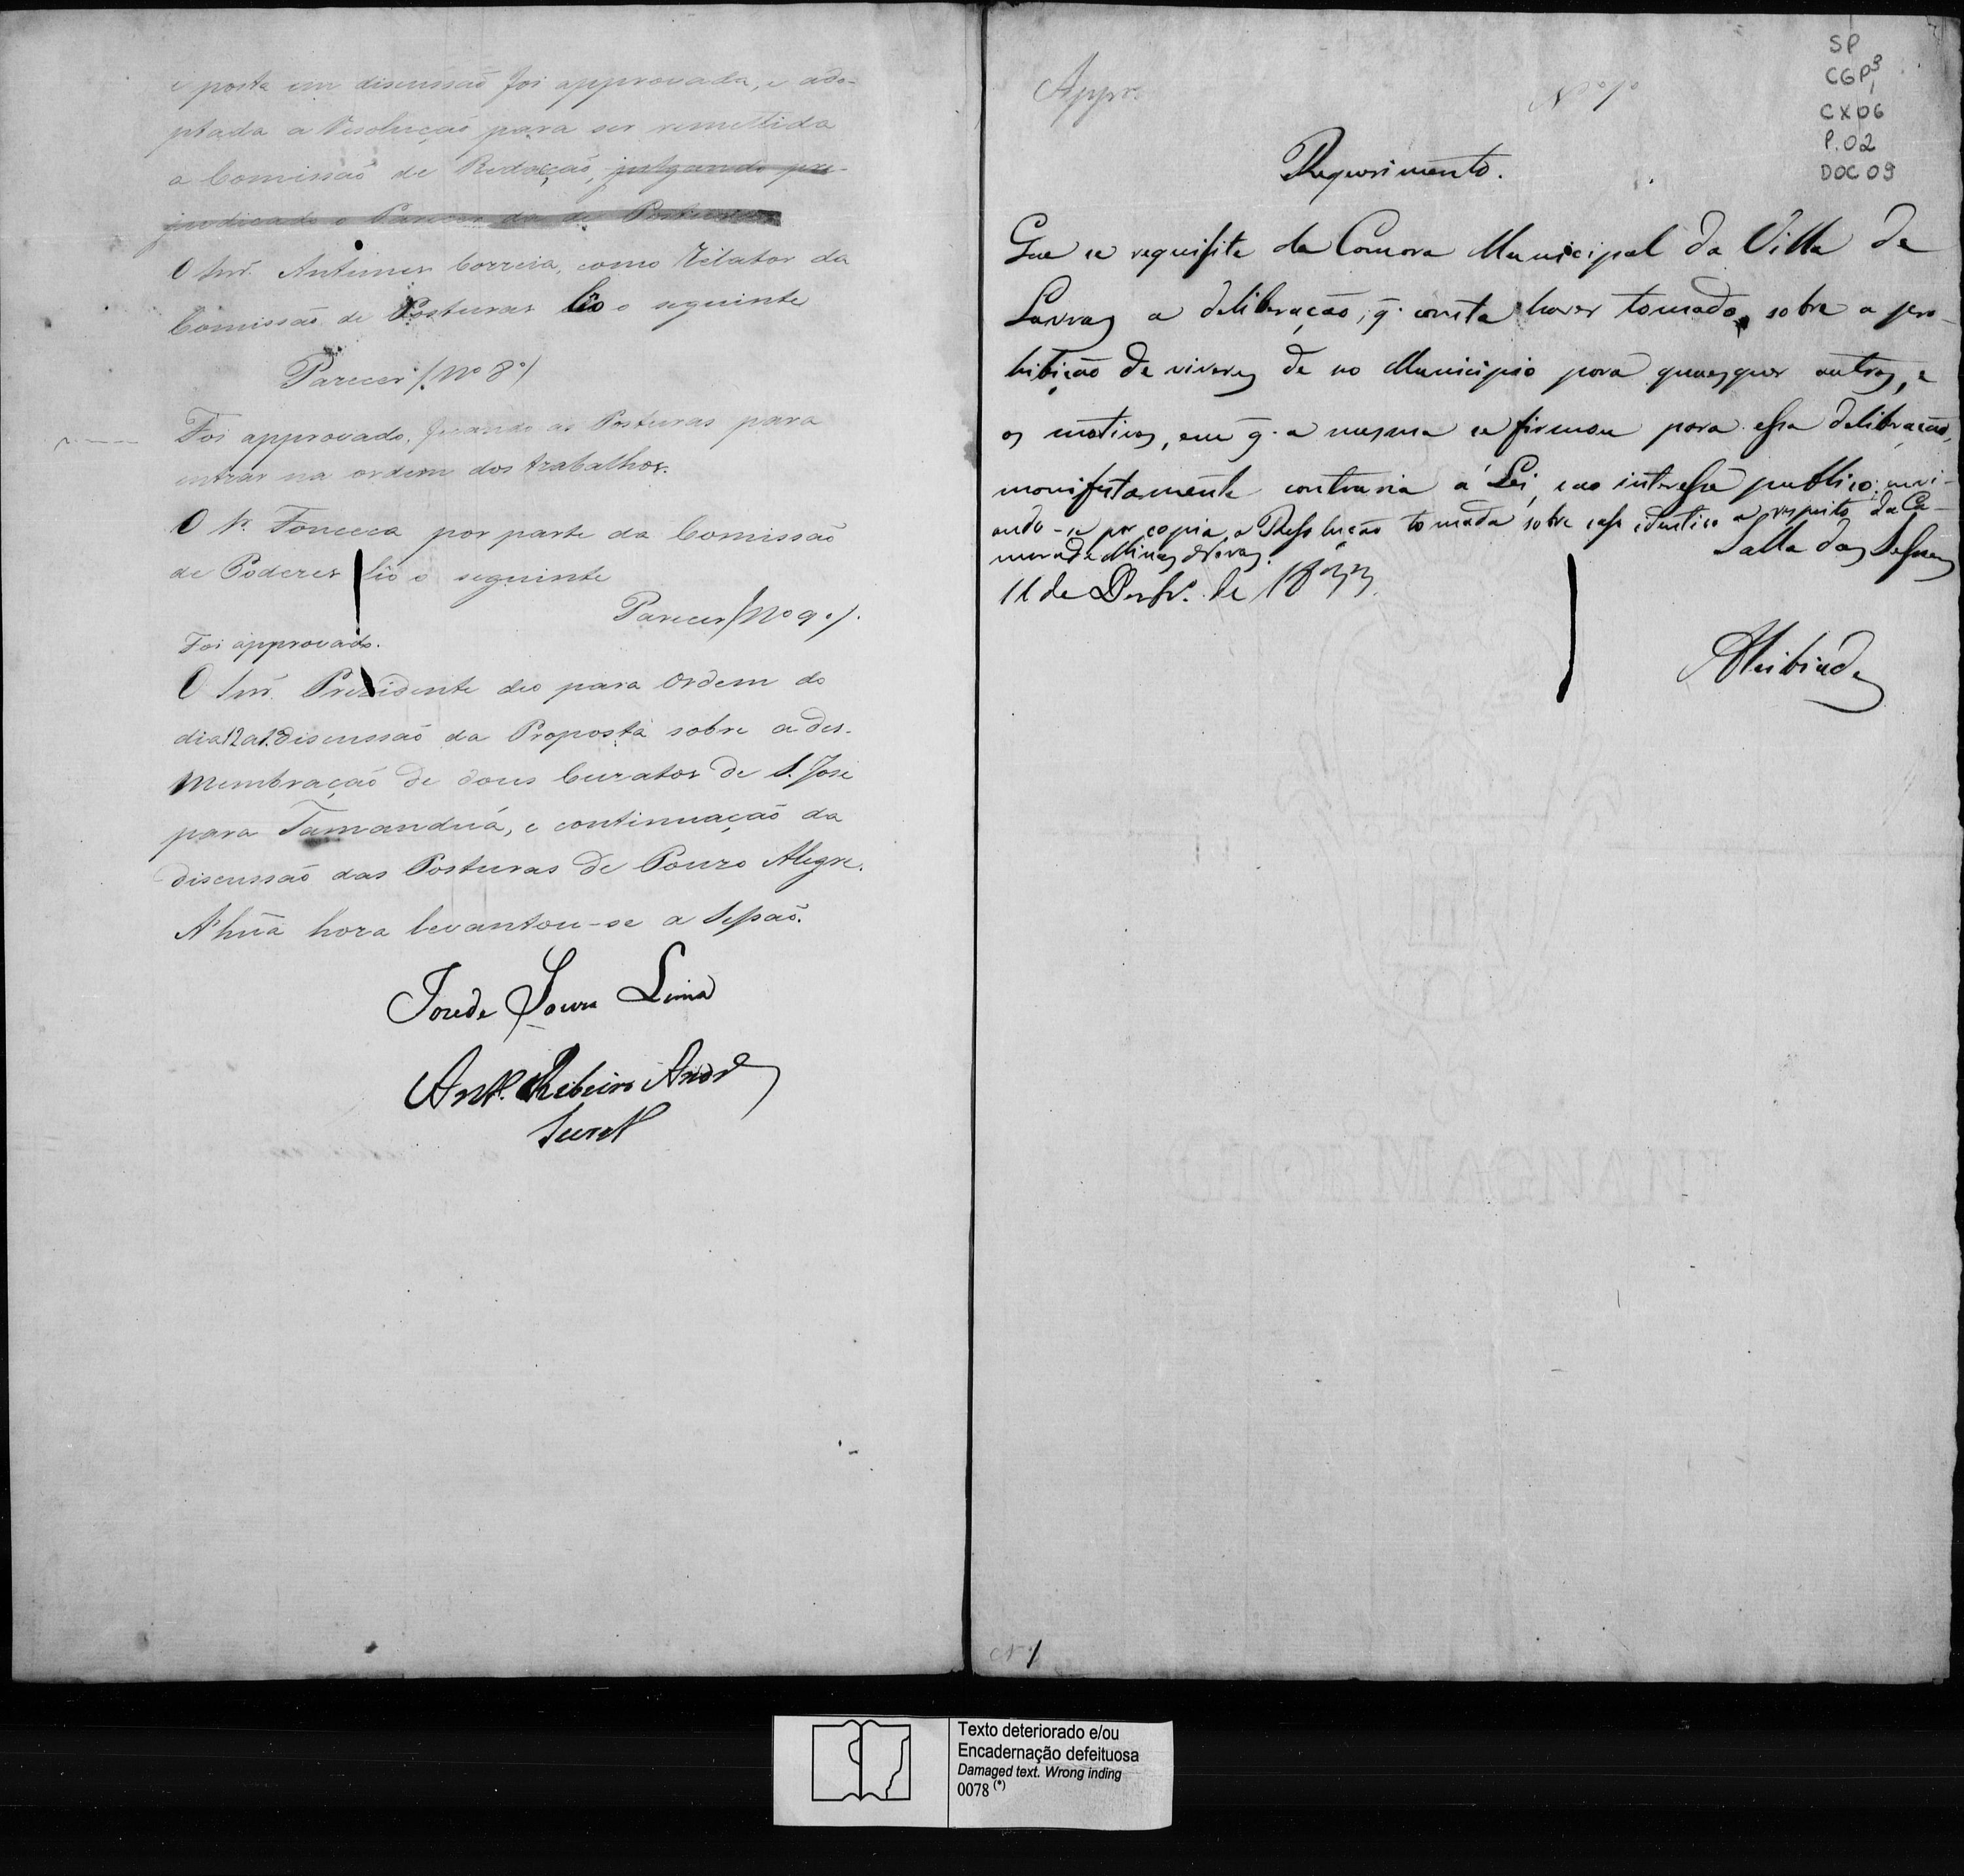 e posta em discussão foi approvada, e ado-
ptada a Resolução para ser remettida
a Comissão de Redacção, julgando pre-
judicado o Parecer da de Posturas
O Snr. Antunes Correia, como Relator da
Comissão de Posturas lêo o seguinte
Parecer (Nº 8º)
Foi approvado, ficando as Posturas para
entrar na ordem dos trabalhos.
O Sr. Fonceca por parte da Comissão
de Poderes lêo o seguinte
Parecer (Nº 9º).
Foi approvado.
O Snr. Prezidente deo para Ordem do
dia 12 a 1ª discussão da Proposta sobre a des-
membração de dous Curatos de S. José
para Tamanduá, e continuação da
discussão das Posturas de Pouzo Alegre.
A' huã hora levantou-se a Sessão.
Jose de Souza Lima
Antº. Ribeiro Andrº
SP
CGP³,
CX06
P.02
DOC 09
Appr.
Nº 1º
Requerimento.
Que se requisite da Camara Municipal da Villa de
Lavras a deliberação, q. consta haver tomado, sobre a pro-
hibição de viveres de no Municipio para quaesquer outros, e
os motivos, em q. a mesma se firmou para essa deliberação,
manifestamente contraria á Lei, e ao interesse publico: envi-
ando-se por copia, a Resolução tomada sobre caso identico a respeito da Ca-
mara de Minas Novas.
Salla das Sessoens
11 de Dezbrº. de 1833.
Alcibiade
Nº 1
Texto deteriorado e/ou
Encadernação defeituosa
Damaged text. Wrong inding
0078 (*)